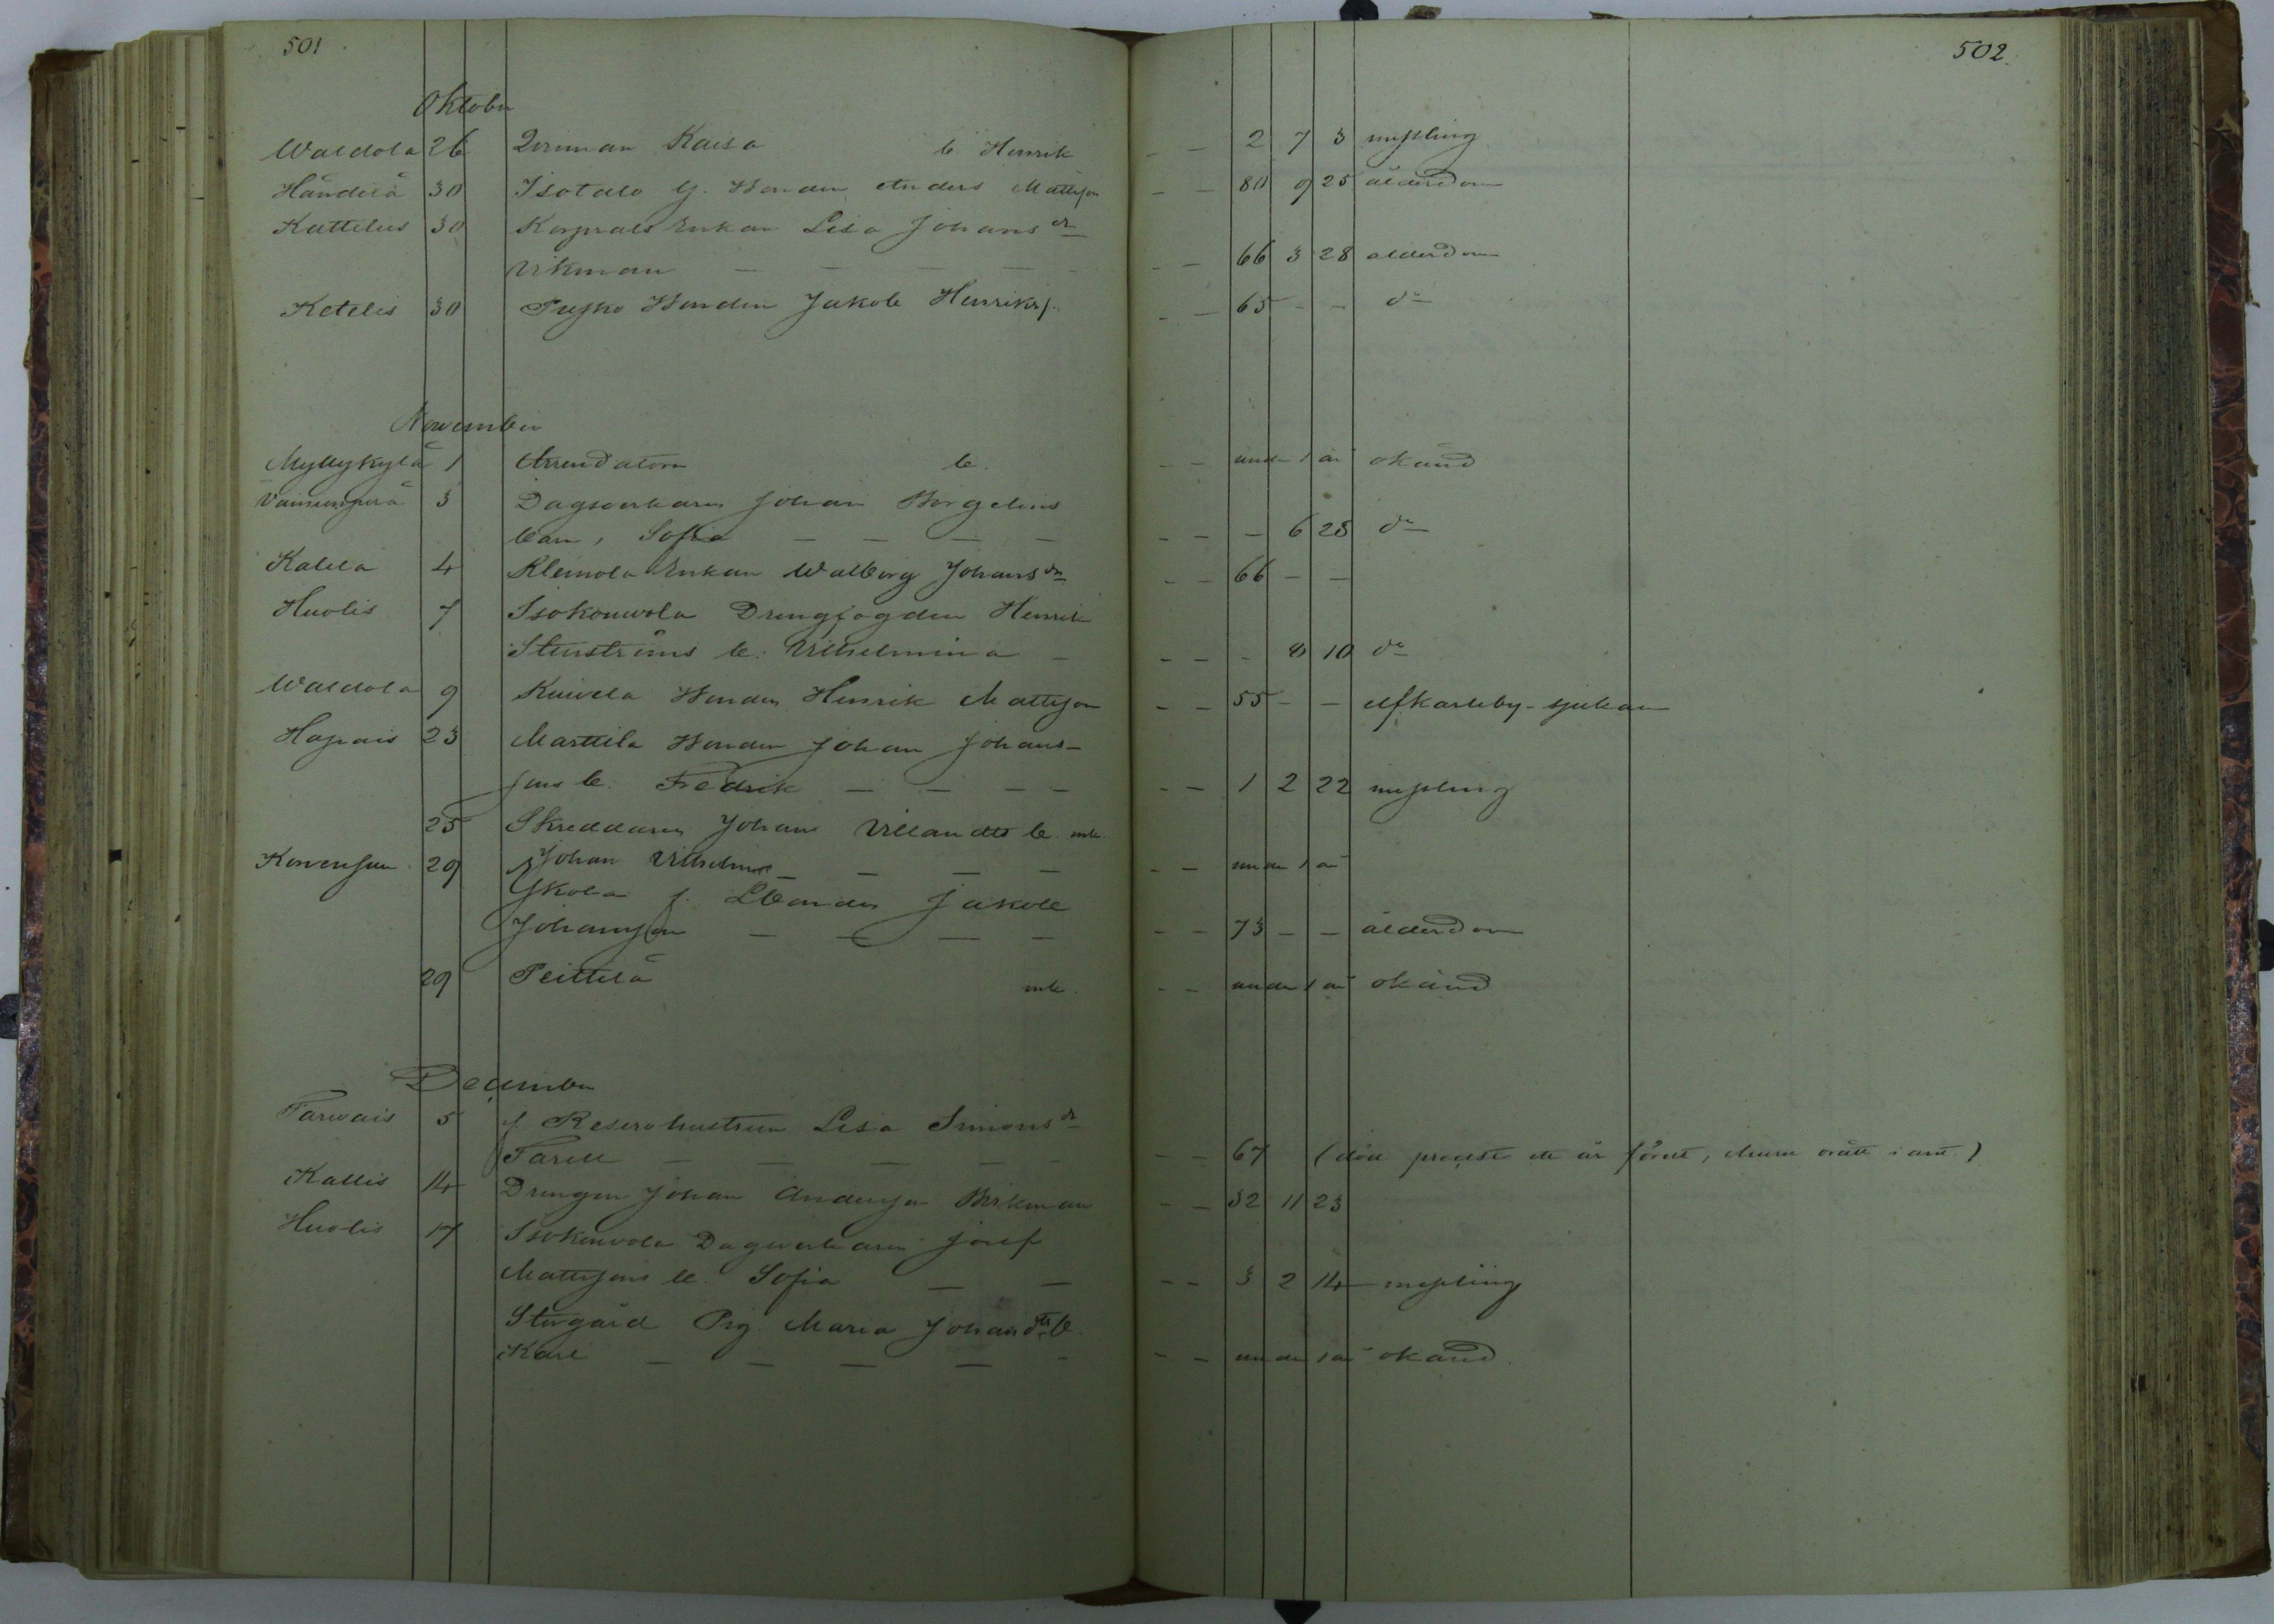 501
502.
Oktober
Waldola 26 Qvinnan Kaisa b. Henrik - - 2 7 3 messling
Händelä 30 Isotalo g. Bonden Anders Mattsson - - 80 9 25 ålderdom
Kuttelus 30 Korprals Enkan Lisa Johansdr
Vikman - - - - - - 66 3 28 ålderdom
Ketelis 30 Bonden Jakob Henrikss. - - 65 - - do
November
Myllykylä 1 Arrendatorn b. - - under 1 år okänd
Vainionperä 3 Dagsverkaren Johan Borgelins
barn, Sofia - - - - - - - 6 28 do
Kalela 4 Klemola Enkan Walborg Johansdr - - 66 - -
Huolis 7 Isokouvola Drengfogden Henrik
Stenströms b. Vilhelmina - - - - 8 10 do
Waldola 9 Kuivela Bonden Henrik Mattsson - - 55 - - elfkarleby-sjukan
Hapais 23 Marttila Bonden Johan Johans-
sons b. Fredrik - - - - - - 1 2 22 messling
25 Skreddaren Johan Villandts b. mk.
Konensuu 29 Johan Vilhelm - - - - - under 1 år
Yskola f. Bonden Jakob
Johansson - - - - - - 73 - - ålderdom
29 Peittilä mk. - - under 1 år okänd
December
Tarwais 5 f. Reservhustrun Lisa Simonsdr
Farell - - - - - - 67 (död ett år förut,
Kallis 14 Drengen Johan Andersson Birkman - - 32 11 23
Huolis 17 Isokouvola Dagsverkaren Josef
Mattssons b. Sofia - - - - 3 2 14 messling
Storgård Pig. Maria Johansdrs b.
Karl - - - - - - - under 1 år okänd.